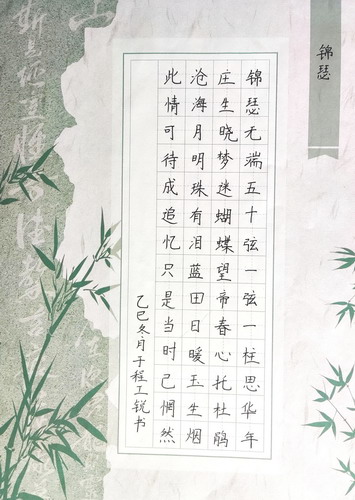 锦瑟
锦瑟无端五十弦一弦一柱思华年
庄生晓梦迷蝴蝶望帝春心托杜鹃
沧海月明珠有泪蓝田日暖玉生烟
此情可待成追忆只是当时已惘然
乙巳冬月于程工锐书